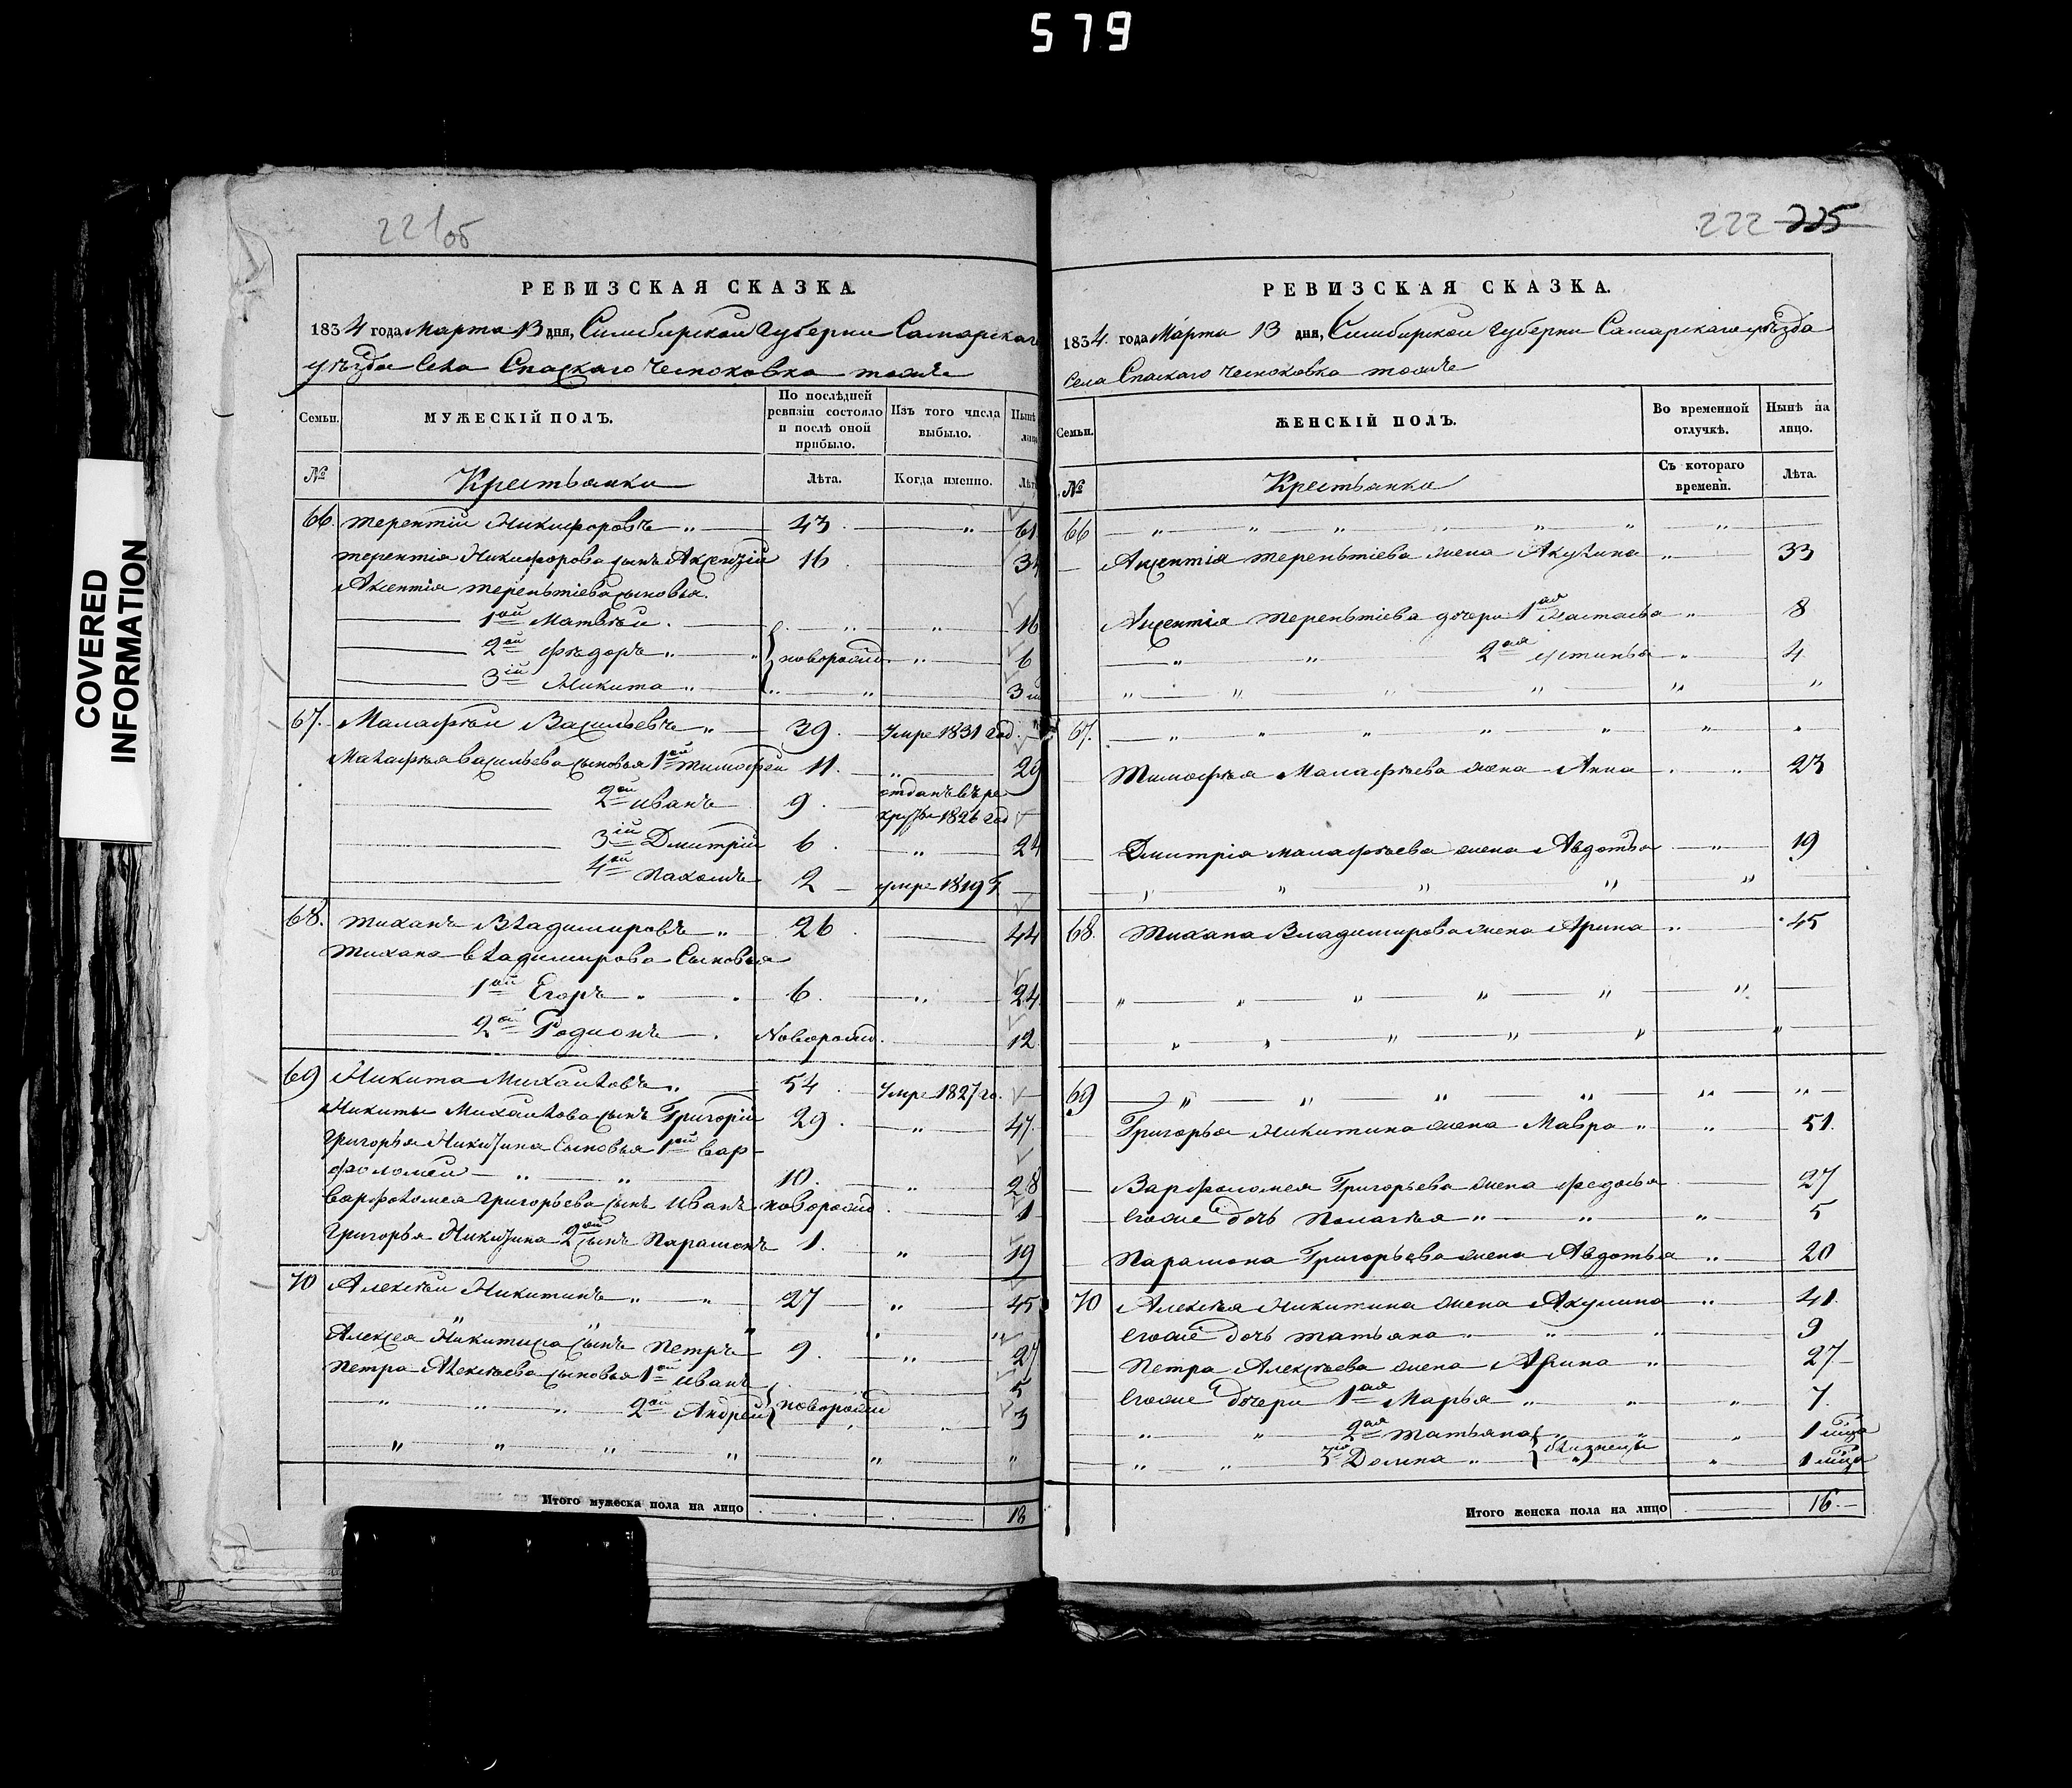 579
COVERED
INFORMATION
221об
РЕВИЗСКАЯ СКАЗКА.
1834 года Марта 13 дня, Симбирской Губерни Самарскаго
уѣзда Села Спаскаго Чесноковка тожъ
Семьи. МУЖЕСКІЙ ПОЛЪ. По послѣдней ревизіи состояло и послѣ оной прибыло. Изъ того числа выбыло. Нынѣ лицо
№ Крестьянки Лѣта. Когда именно. Лѣта
66. Терентій Никифоровъ „ 43. „ 61
Терентія Никифорова сынъ Аксентій 16 34
Аксентія Терентьіева сыновья.
1ой Матвѣй. „ „ 16
2ой Ѳедоръ „ новорожд. „ 6
3ій Никита „ „ „ 3
67. Малафѣй Васильевъ „ 39. умре 1831 год.
Малафѣя Васильева сыновья 1ой Тимофей 11. „ 29
2ой Иванъ 9. отданъ въ ре
круты 1826 год
3ій Дмитрій 6 „ 24
4ой Пахомъ 2 умре 1819 г
68. Тиханъ Владимировъ „ 26 44
Тихана Владимирова Сыновья
1ой Егоръ „ 6. „ 24
2ой Родионъ Новорожд. 12
69 Никита Михайловъ „ 54 умре 1827 го.
Никиты Михайлова сынъ Григорій 29. „ 47.
Григорья Никитина Сыновья 1ой Вар-
фоломей „ „ 10. „ 28
Варфоломея Григорьева сынъ Иванъ новорожд. 1
Григорья Никитина 2ой сынъ Парамонъ 1. „ 19
70 Алексѣй Никитинъ „ „ 27 „ 45
Алексея Никитина сынъ Петръ 9. „ 27
Петра Алексѣева сыновья 1ой Иванъ 5
„ „ „ 2ой Андрей новорожд 3
„ „ „ „ „ „
Итого мужеска пола на лицо 18
222 225
РЕВИЗСКАЯ СКАЗКА.
1834. года Марта 13 дня, Симбирской Губерни Самарскаго уѣзда
Села Спаскаго Чесноковка тожъ
Семьи. ЖЕНСКІЙ ПОЛЪ. Во временной отлучкѣ. Нынѣ на лицо.
№ Крестьянки Съ котораго времени. Лѣта.
66 „ „ „ „ „ „ „
Аксентія Терентьіева жена Акулина „ 33
Аксентія Терентьіева дочери 1ая Настасья „ 8
„ „ 2ая Устинья „ 4.
„ „ „ „ „ „
67. „ „ „ „ „ „ „
Тимофѣя Малафѣева жена Анна „ 23
Дмитрія Малафѣева жена Авдотья „ 19
„ „ „ „ „
68. Тихана Владимирова жена Арина „ 45
„ „ „ „ „ „
„ „ „ „ „ „
69 „ „ „ „ „ „
Григорья Никитина жена Мавра „ „ 51.
Варфоломея Григорьева жена Федосья 27
Егоже дочь Полагѣя „ „ „ 5
Парамона Григорьева жена Авдотья „ 20
70 Алексѣя Никитина жена Акулина „ 41.
Егоже дочь Татьяна „ „ „ 9
Петра Алексѣева жена Арина „ 27
Егоже дочери 1ая Марья „ „ „ 7.
„ „ 2ая Татьяна „ „ 1
„ „ 3ія Домна „ близнецы „ 1
Итого женска пола на лицо 16.